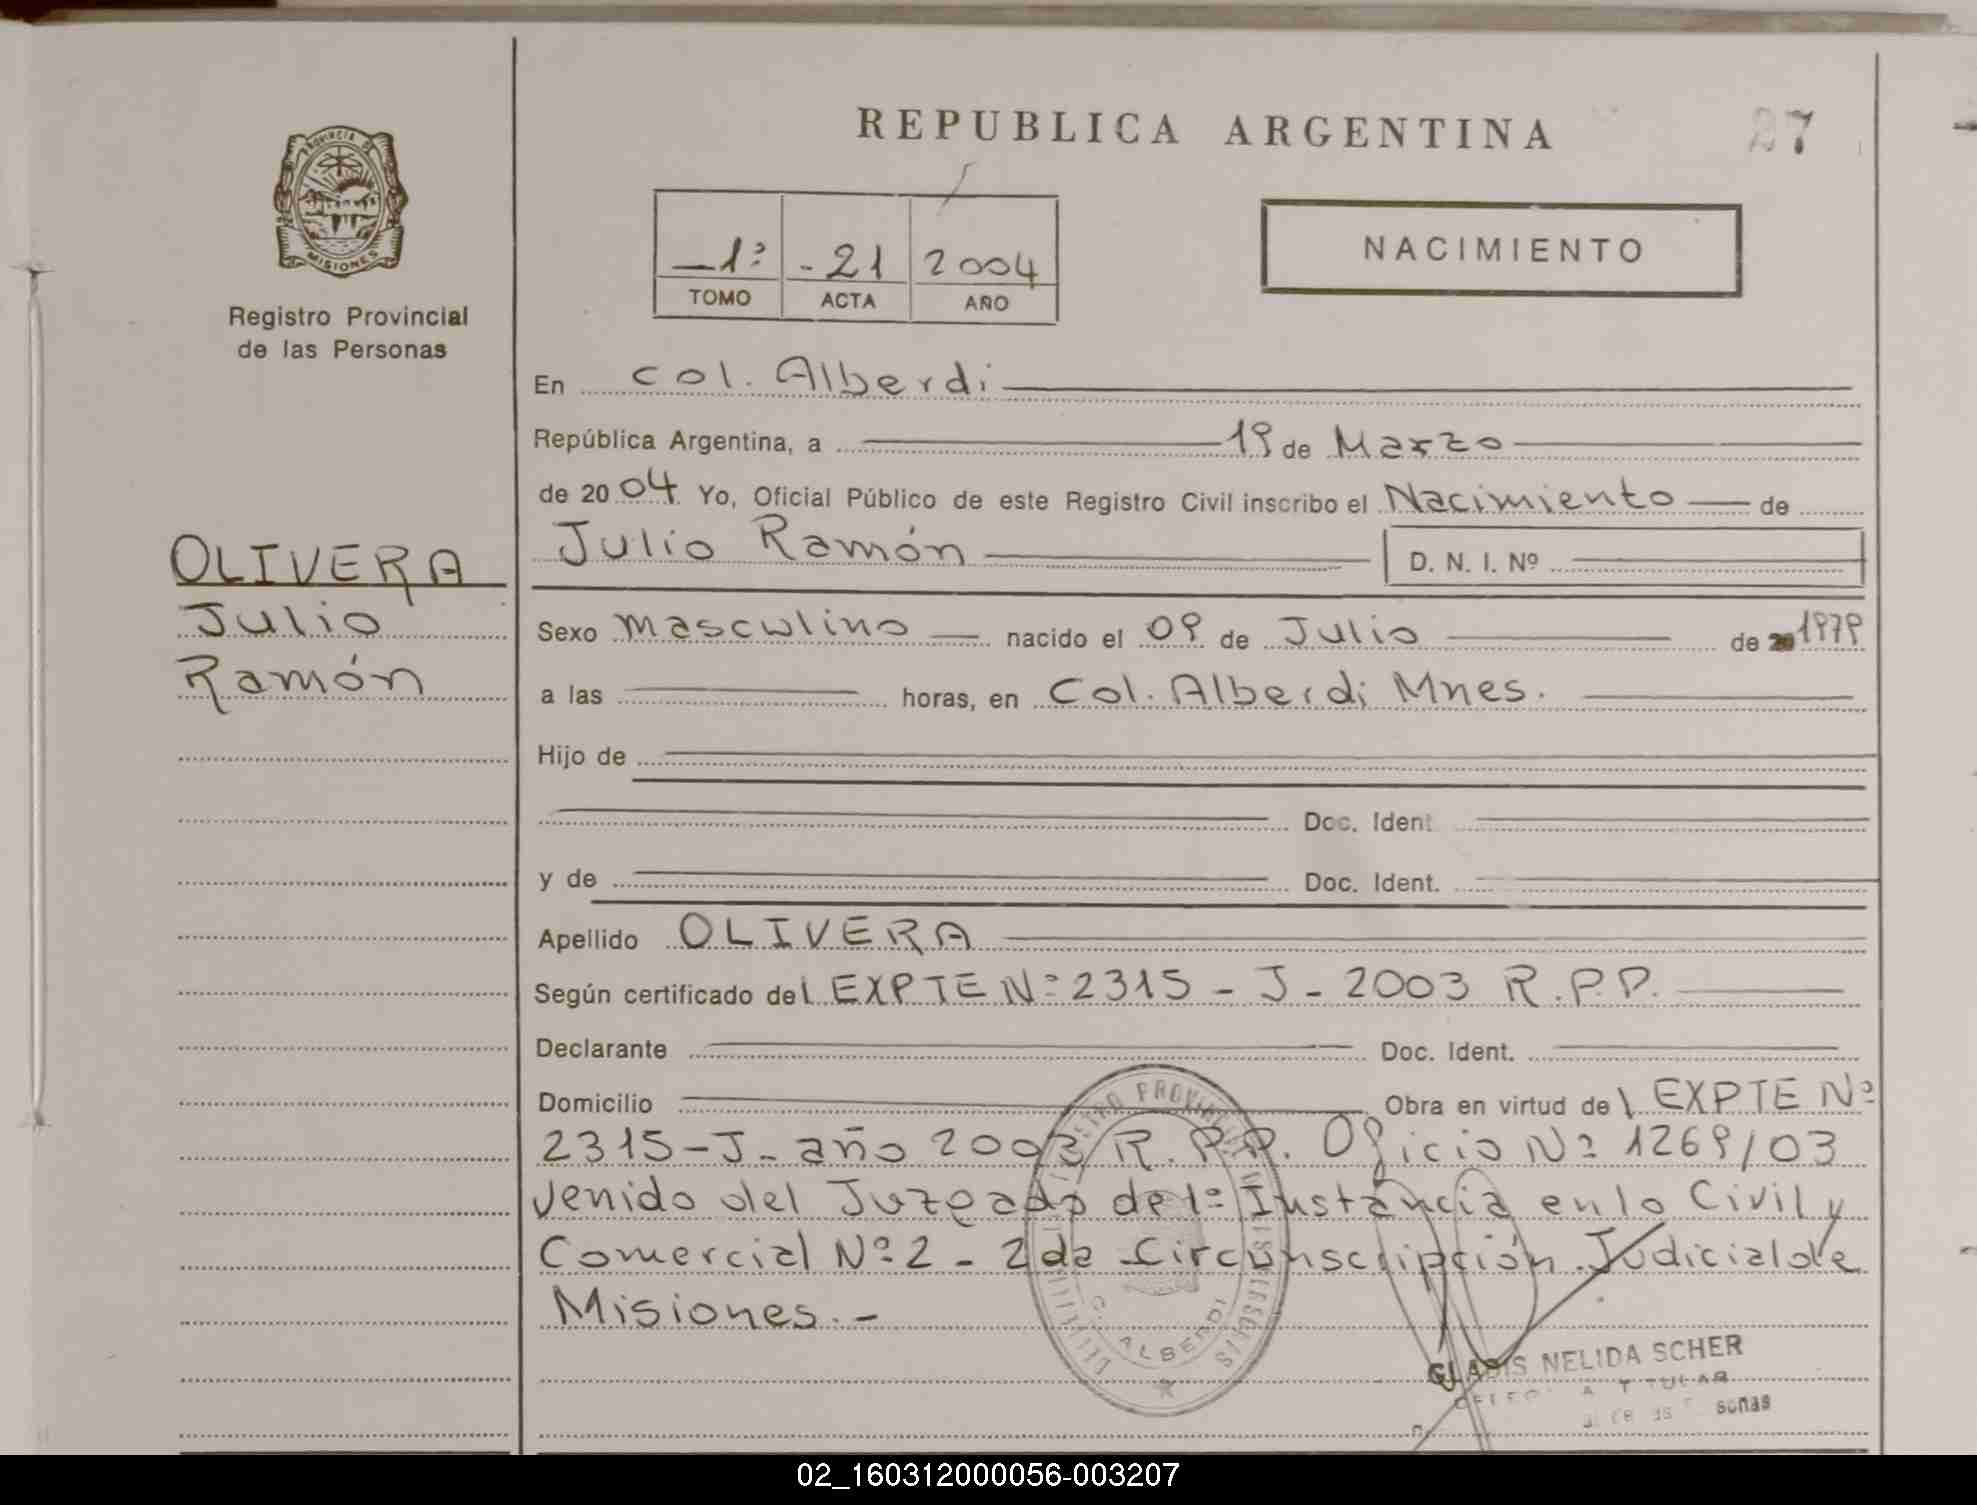 REPUBLICA ARGENTINA
27
PROVINCIA DE
MISIONES
Registro Provincial
de las Personas
1º - 21 2004
TOMO ACTA AÑO
NACIMIENTO
OLIVERA
Julio
Ramón
En Col. Alberdi
República Argentina, a 19 de Marzo
de 2004 Yo, Oficial Público de este Registro Civil inscribo el Nacimiento de
Julio Ramón D. N. I. Nº
Sexo Masculino nacido el 09 de Julio de 1979
a las horas, en Col. Alberdi Mnes.
Hijo de
Doc. Ident.
y de Doc. Ident.
Apellido OLIVERA
Según certificado del EXPTE Nº 2315 - J - 2003 R.P.P.
Declarante Doc. Ident.
Domicilio Obra en virtud del EXPTE Nº
2315 - J - año 2003 R.P.P. Oficio Nº 1269/03
venido del Juzgado de 1º Instancia en lo Civil y
Comercial Nº 2 - 2da Circunscripción Judicial de
Misiones. -
ALBERDI
GLADIS NELIDA SCHER
TITULAR
02_160312000056-003207